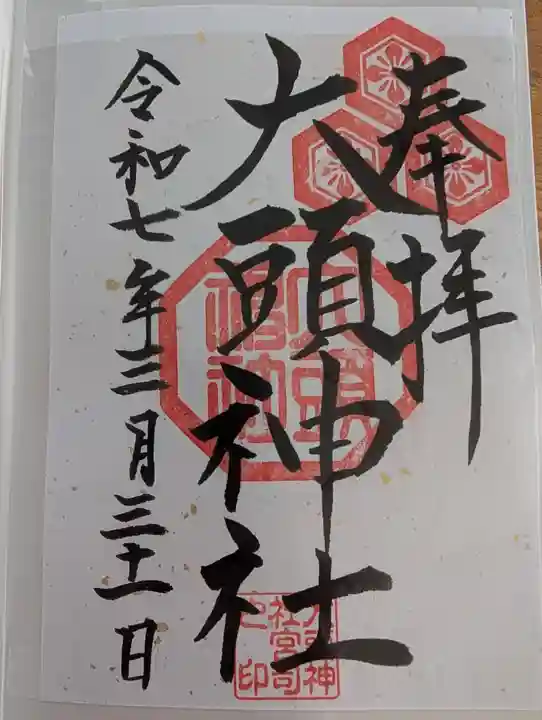 奉拝
大頭神社
令和七年三月三十一日
大頭神社
大頭神
社宮司
之印